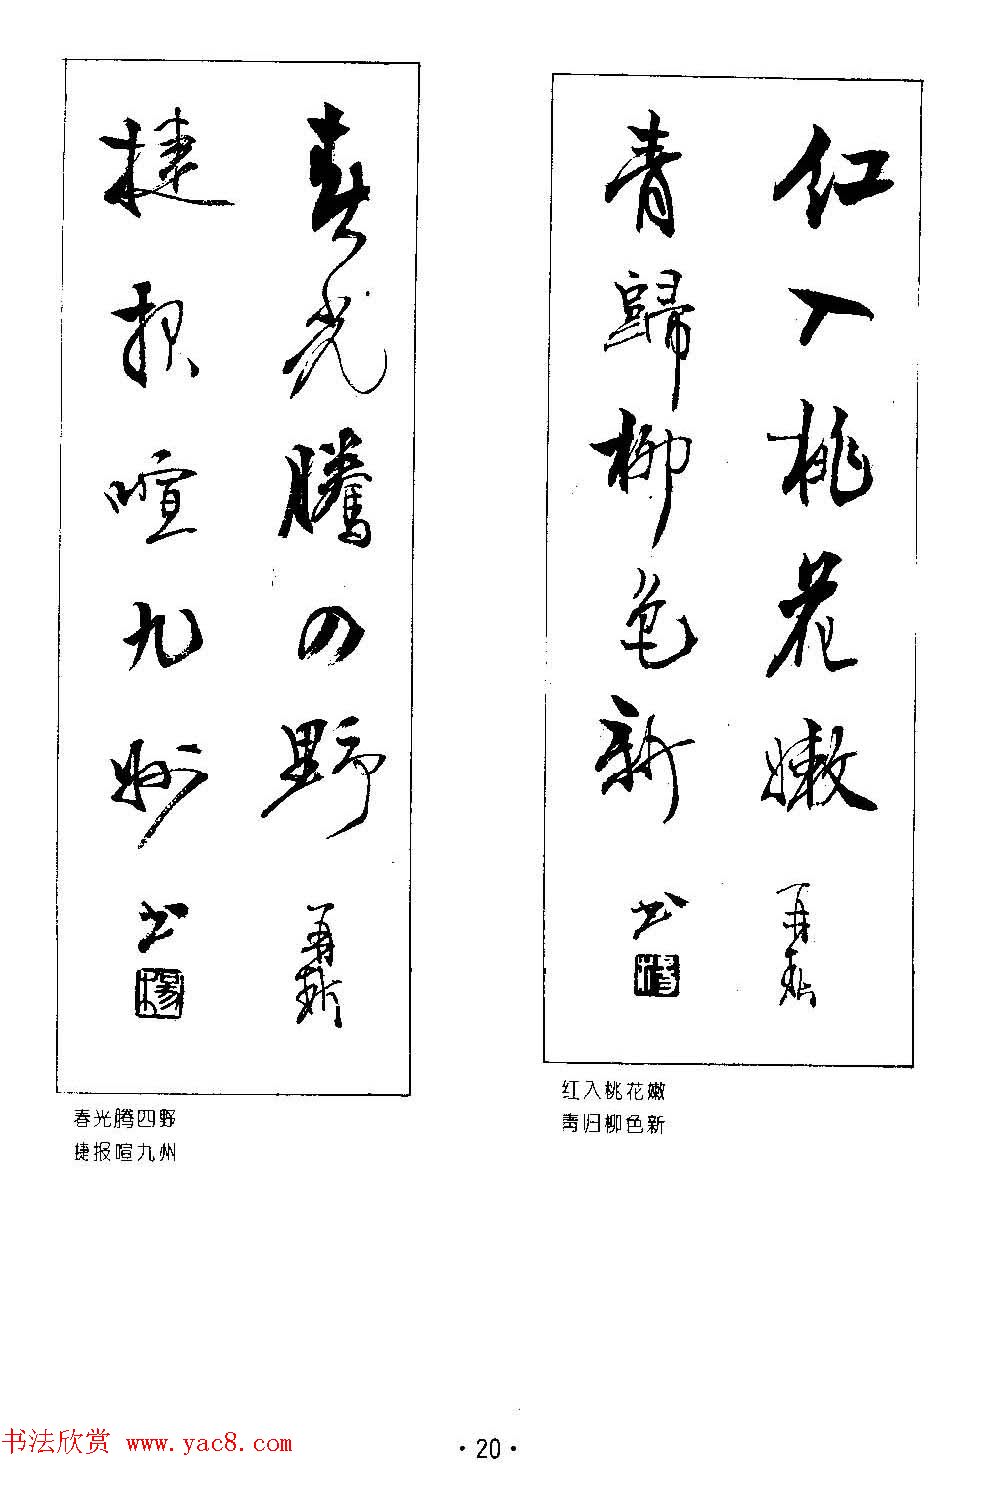 红入桃花嫩
青歸柳色新
再春
书
楊
红入桃花嫩
青归柳色新
春光騰四野
捷报喧九州
再新
书
楊
春光腾四野
捷报喧九州
·20·
书法欣赏 www.yac8.com